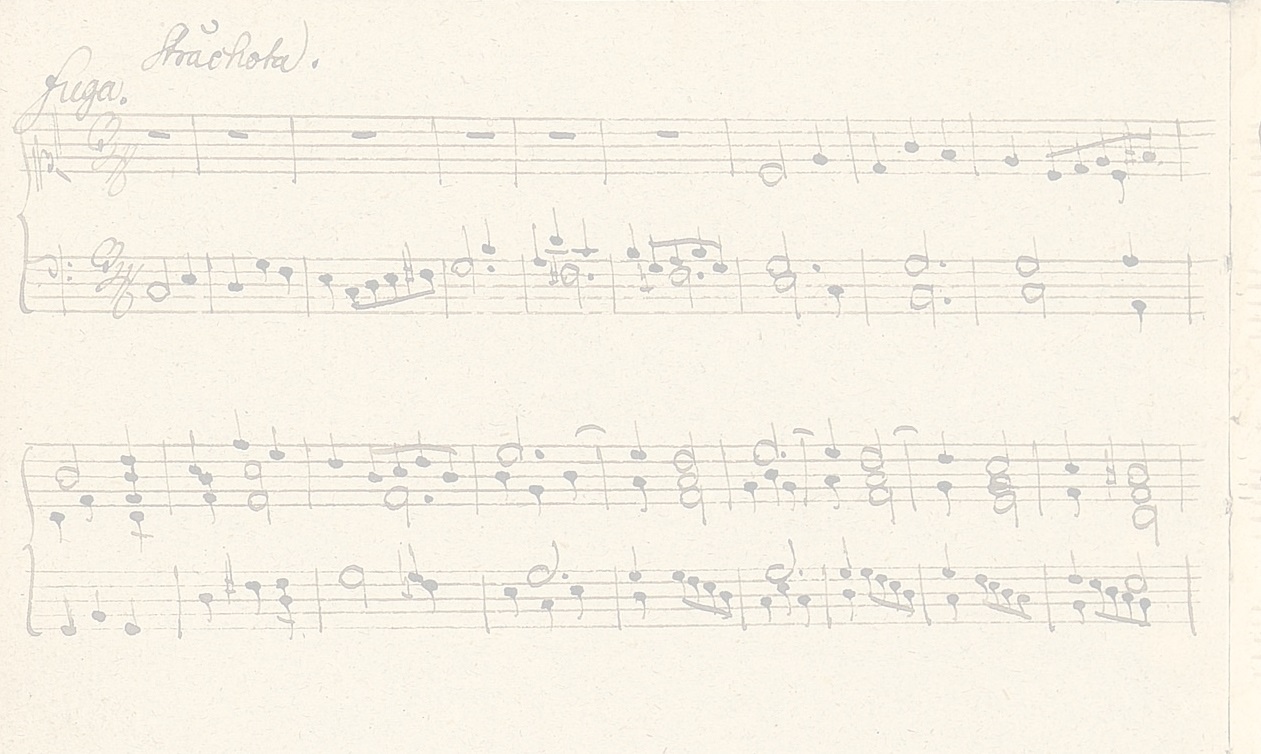 Stračhota.
Fuga.